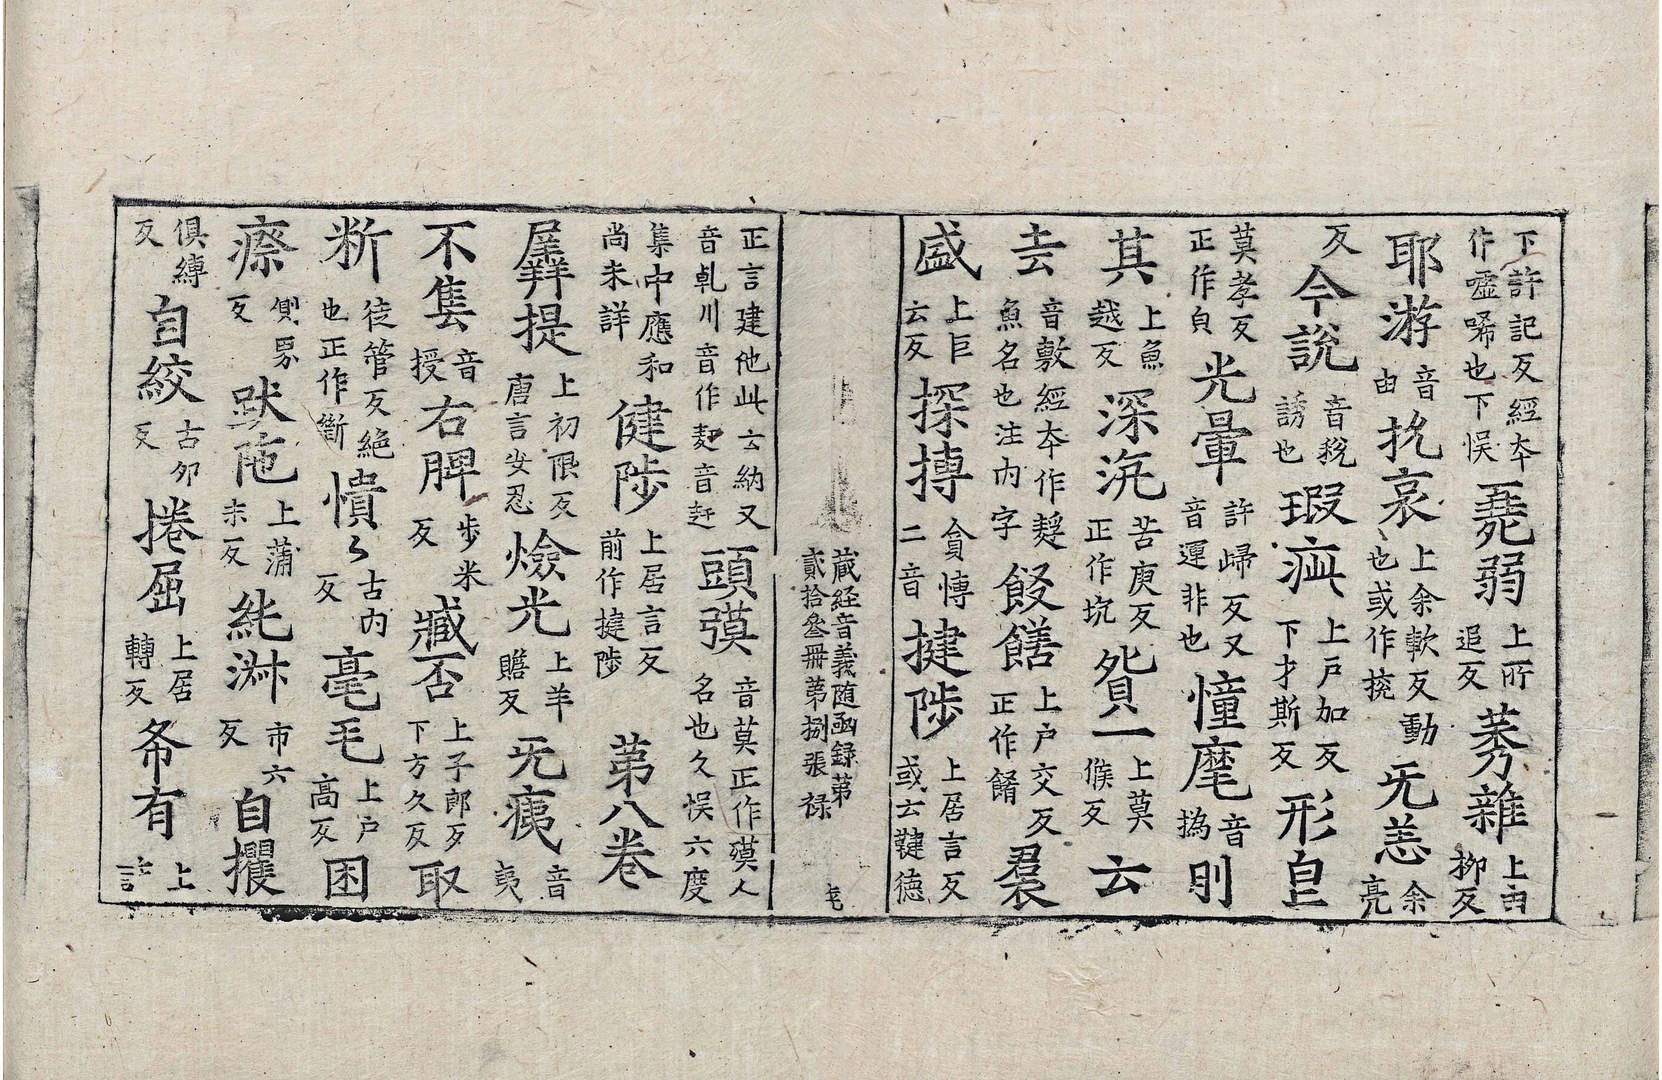 下許記反經夲作噓唏也下悮 羸弱 上所追反 莠雜 上由柳反
耶游 音由 抁哀 上余軟反動也或作㨉 旡恙 余亮
反 今說 音稅誘也 瑕疵 上戸加反下才斯反 形皃
莫孝反正作皃 光暈 許歸反又音運非也 憧麾 音撝 則
其 上魚越反 深坑 苦庚反正作坑 貿一 上莫候反 云
去 音敷經夲作䴸魚名也注内字 餚饍 上户交反正作餚 羣
盛 上巨云反 探摶 貪慱二音 揵陟 上居言反或云鞬德
藏經音義随函録第
貳拾叄冊第捌張 禄
正言建他此云納又音乹川音作䴬音赶 頭蟆 音莫正作蟆人名也久悮六度
集中應和尚未詳 健陟 上居言反前作揵陟 第八卷
羼提 上初限反唐言安忍 㷿光 上羊贍反 旡痍 音夷
不售 音授 右脾 步米反 臧否 上子郎反下方久反 取
断 徒管反絶也正作斷 憒〻 古内反 毫毛 上户高反 困
瘵 側界反 跋陁 上蒲末反 純淑 市六反 自攫
俱縛反 自絞 古夘反 捲屈 上居轉反 希有 上